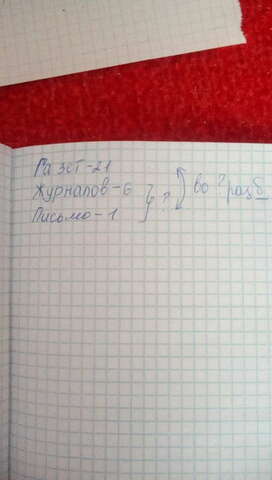 Газет-21
Журналов-6 } ? во ? раз б
Письмо-1